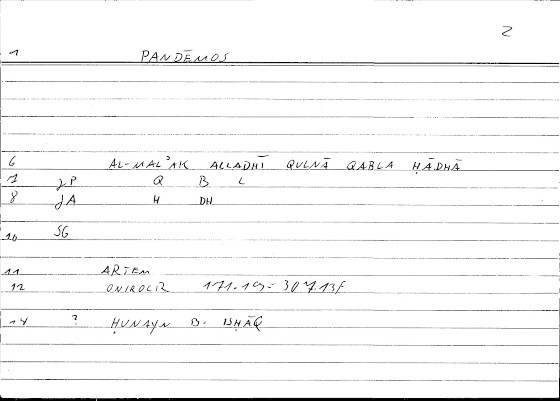 2
1 PANDĒMOS
6 AL-MALʾAK ALLADHĪ QULNĀ QABLA ḤĀDHĀ
7 JP Q B L
8 JA H DH
10 SG
11 ARTEM
12 ONIROCR 171.19 - 307.13F
14 ? ḤUNAYN B. ISḤĀQ